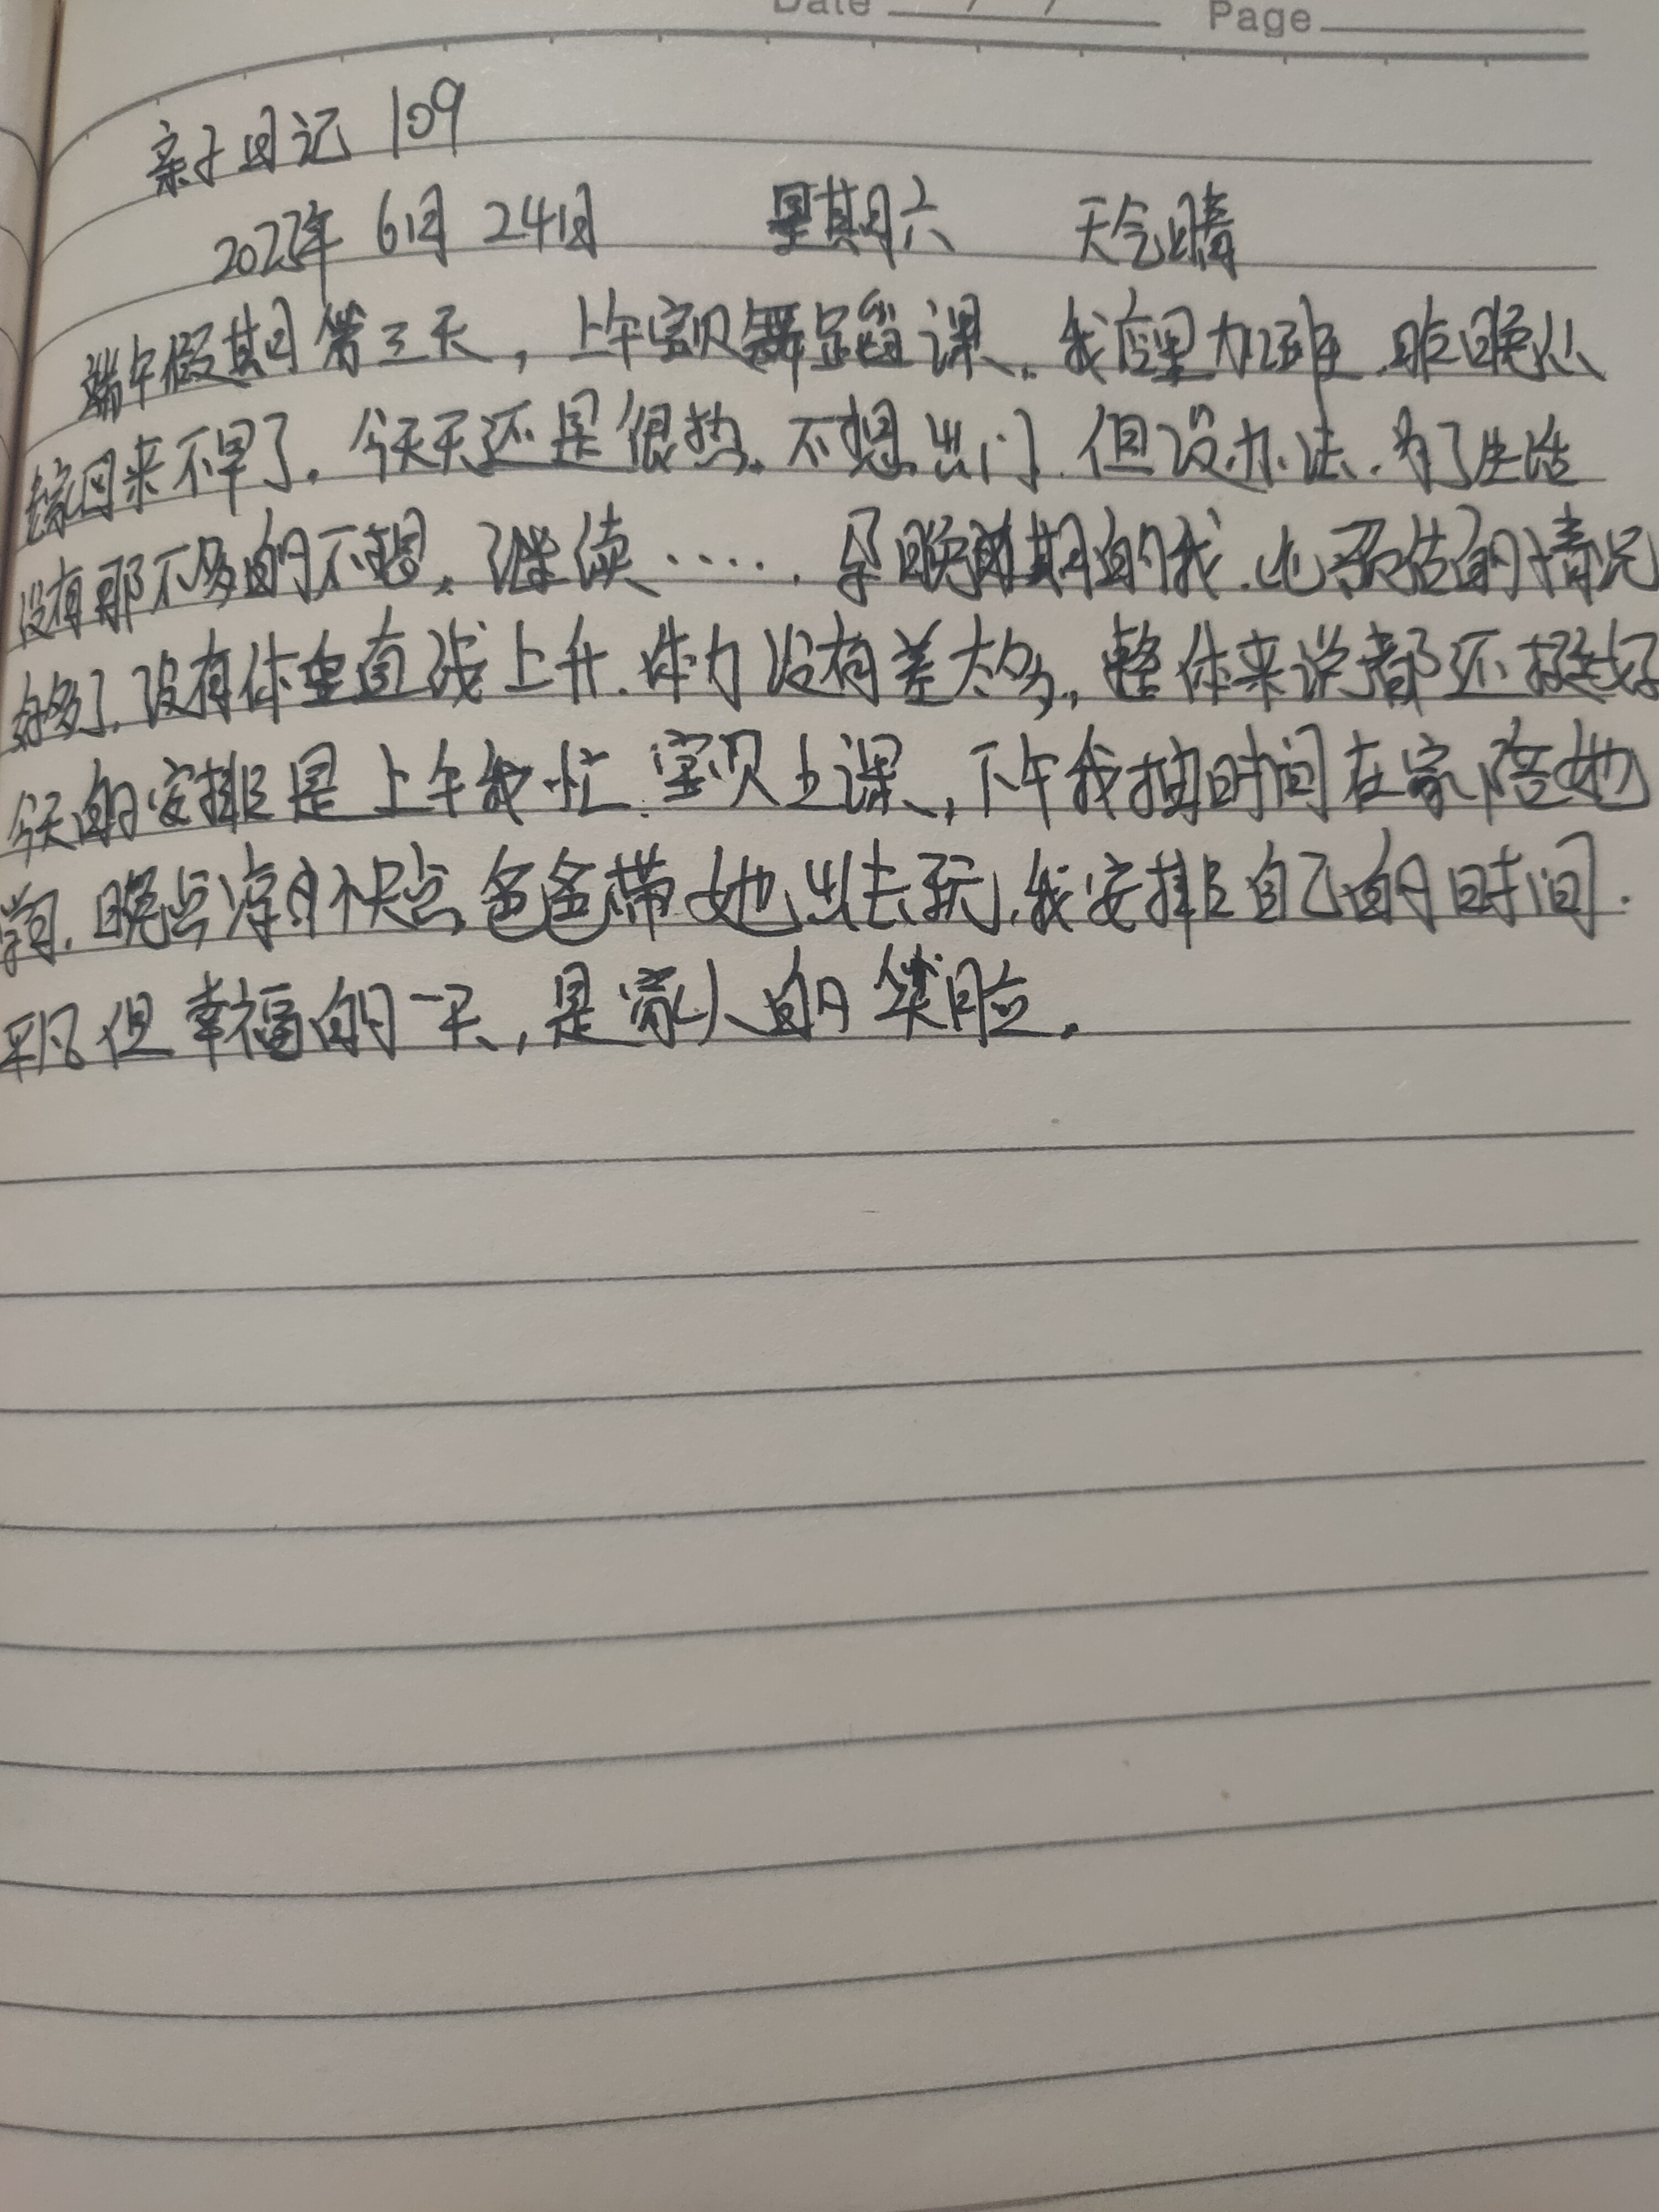 Date / / Page
亲子日记 109
2023年 6月 24日 星期六 天气晴
端午假期第三天，上午宝贝舞蹈课。我店里加班.昨晚从
回来不早了。今天天还是很热。不想出门.但没办法.为了生活
没有那不多的不想。继续……. 孕晚期的我.比预估的情况
好多了.没有体重直线上升.体力没有差太多。整体来说都还挺好
今天的安排是上午我忙.宝贝上课,下午我抽时间在家陪她
晚点凉快点爸爸带她出去玩.我安排自己的时间.
平凡但幸福的一天,是家人的笑脸。